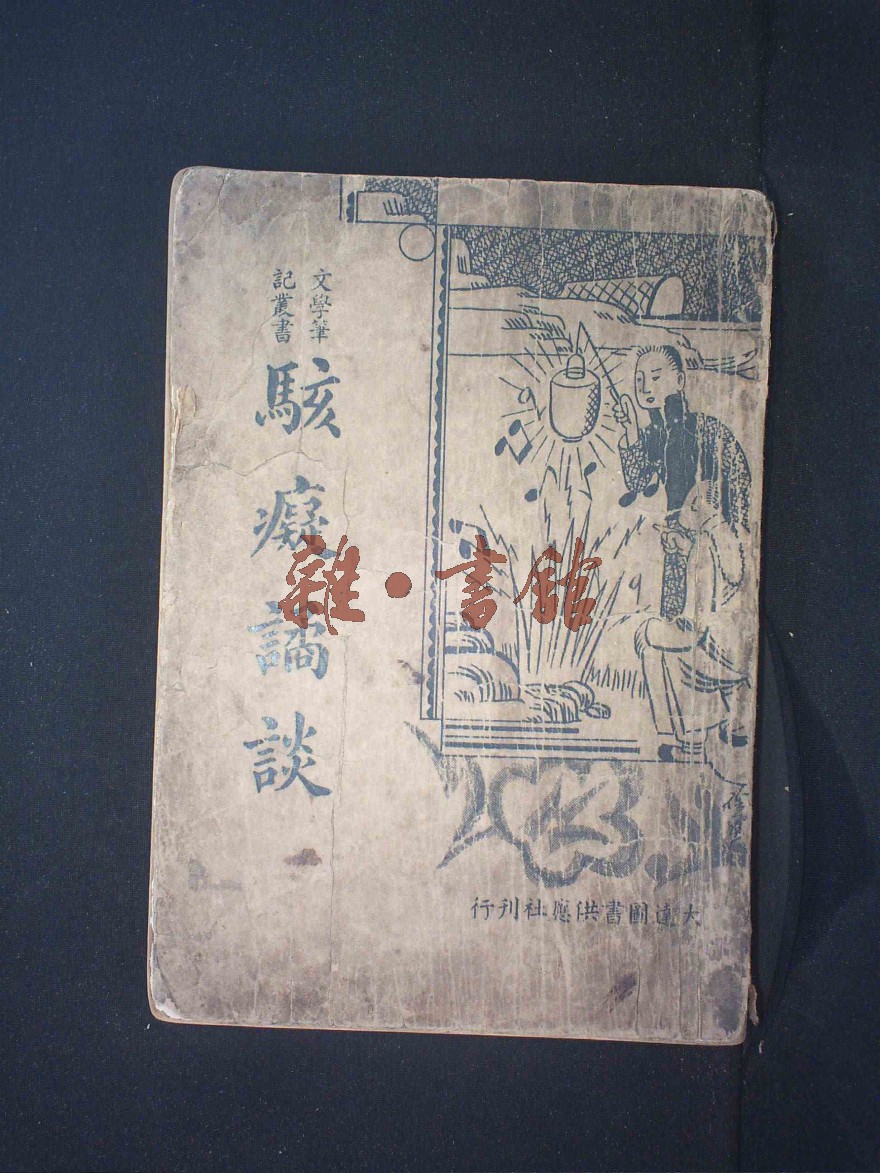 文學筆
記叢書
駭癡譎談
大達圖書供應社刊行
雜·書館